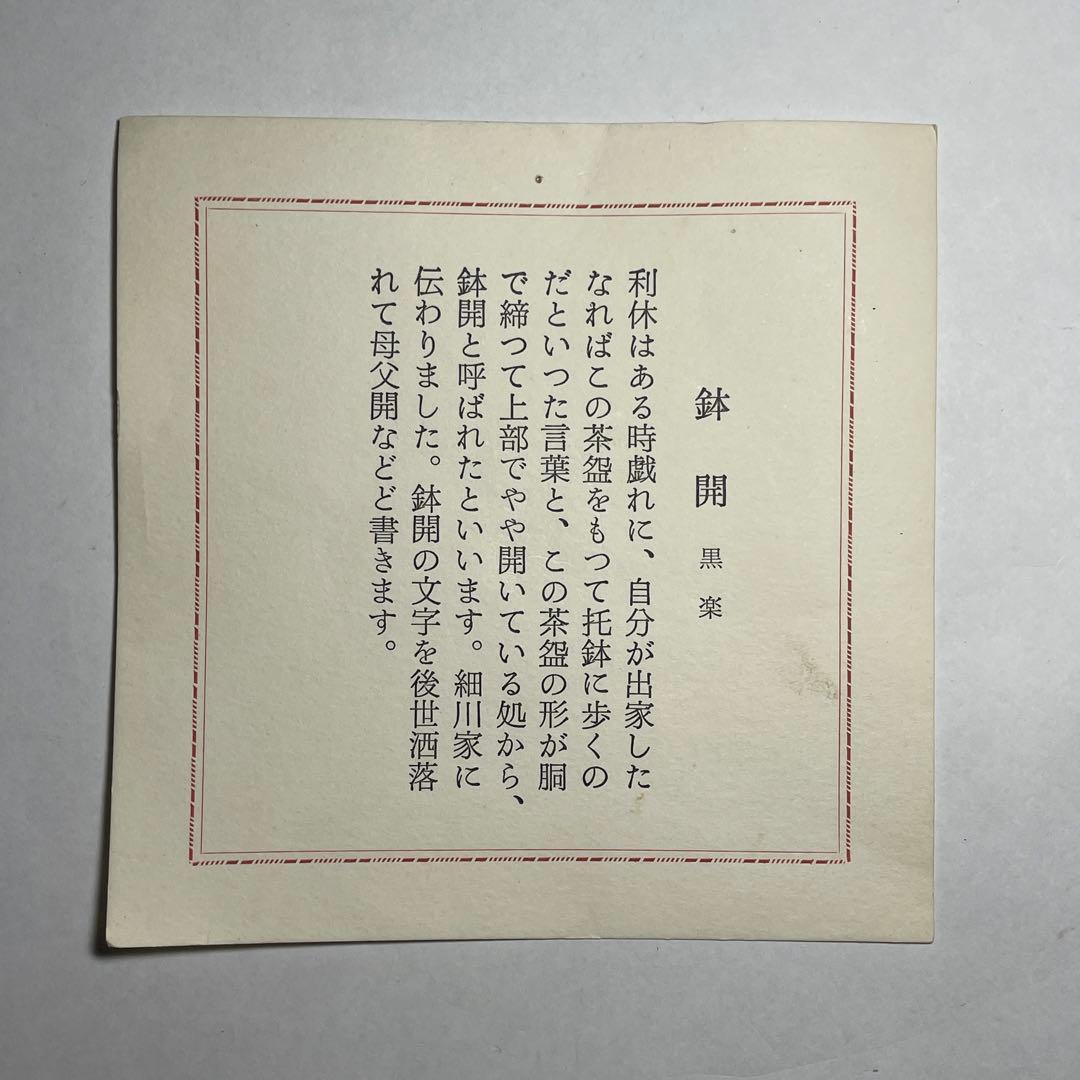 鉢開 黒楽
利休はある時戯れに、自分が出家した
なればこの茶盌をもつて托鉢に歩くの
だといつた言葉と、この茶盌の形が胴
で締つて上部でやや開いている処から、
鉢開と呼ばれたといいます。細川家に
伝わりました。鉢開の文字を後世洒落
れて母父開などど書きます。